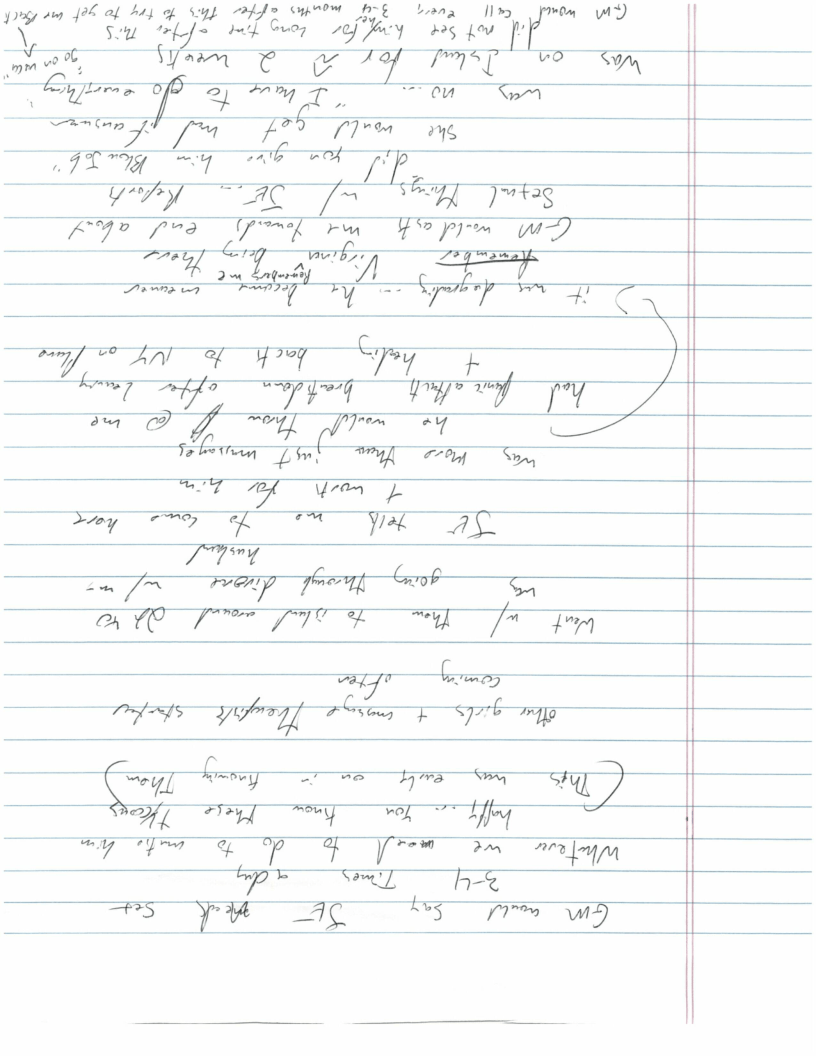 GM would say JE need sex
3-4 Times a day
Whatever we need to do to make him
happy ... you know these things
This was early on in knowing Them
other girls + massage Therapists started
coming often
Went w/ them to island around
was going through divorce w/ my
husband
JE tells me to come here
+ work for him
was more than just massages
he would throw @ me
had panic attack breakdown after leaving
+ heading back to NY on plane
it was degrading ... he became meaner
Remembers me
Remember Virginia being there
GM would ask me towards end about
Sexual Things w/ JE ... Reports
did you give him "Blow Job"
she would get mad if answer
was no ... "I have to do everything"
was on Island for 2 weeks
"go on way"
did not see him/her for long time after this
GM would call every 3-4 months after this to try to get me Back